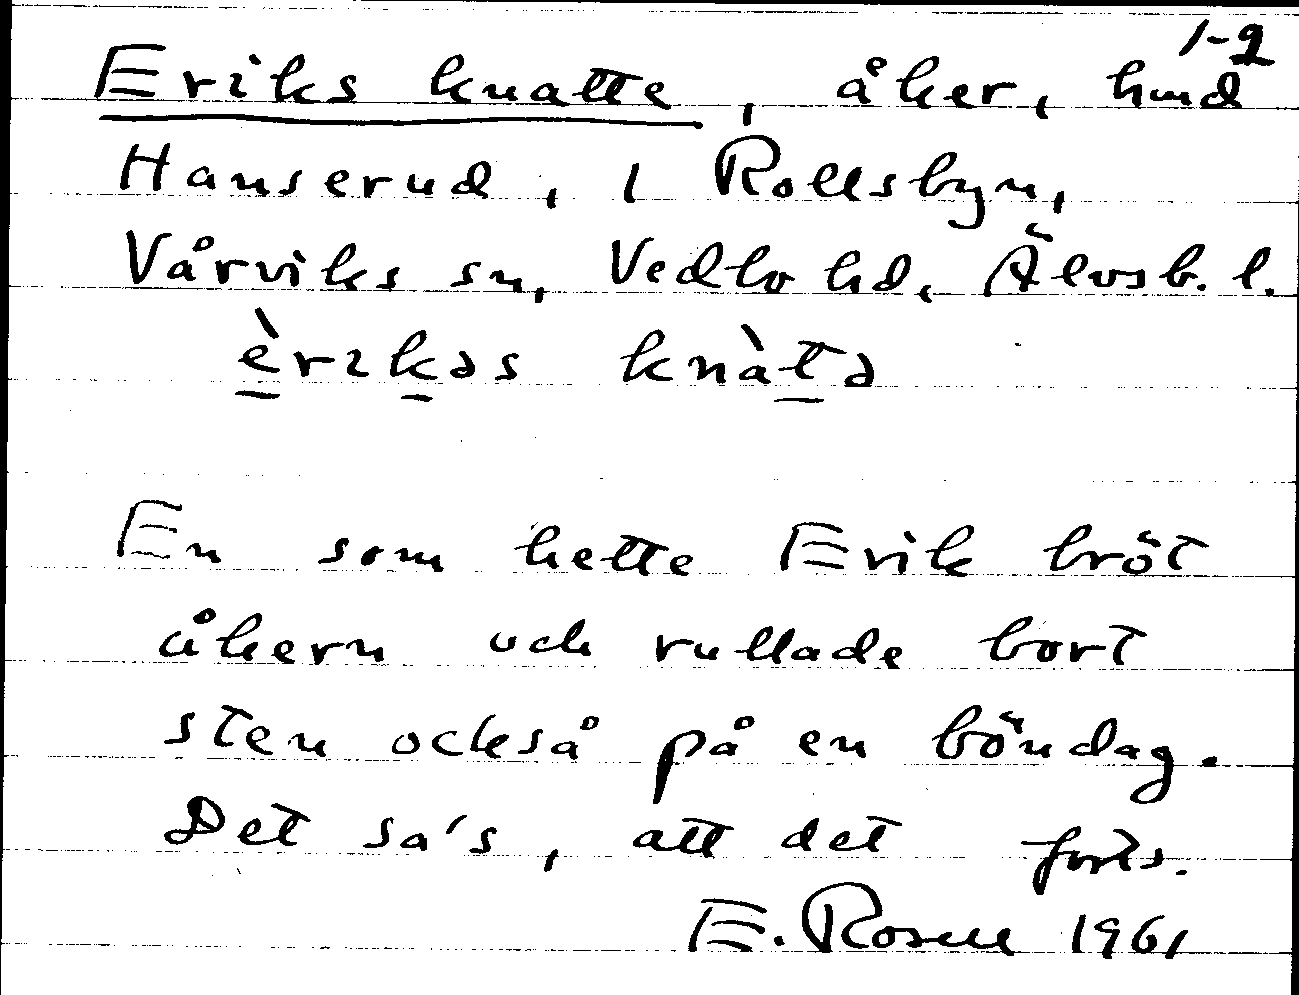 1-2
Eriks knatte, åker, hmd
Hanserud, 1 Rollsbyn,
Vårviks sn, Vedbo hd, Älvsb. l.
èrikəs knàtə
En som hette Erik bröt
åkern och rullade bort
sten också på en böndag.
Det sa's, att det forts.
E. Rosell 1961